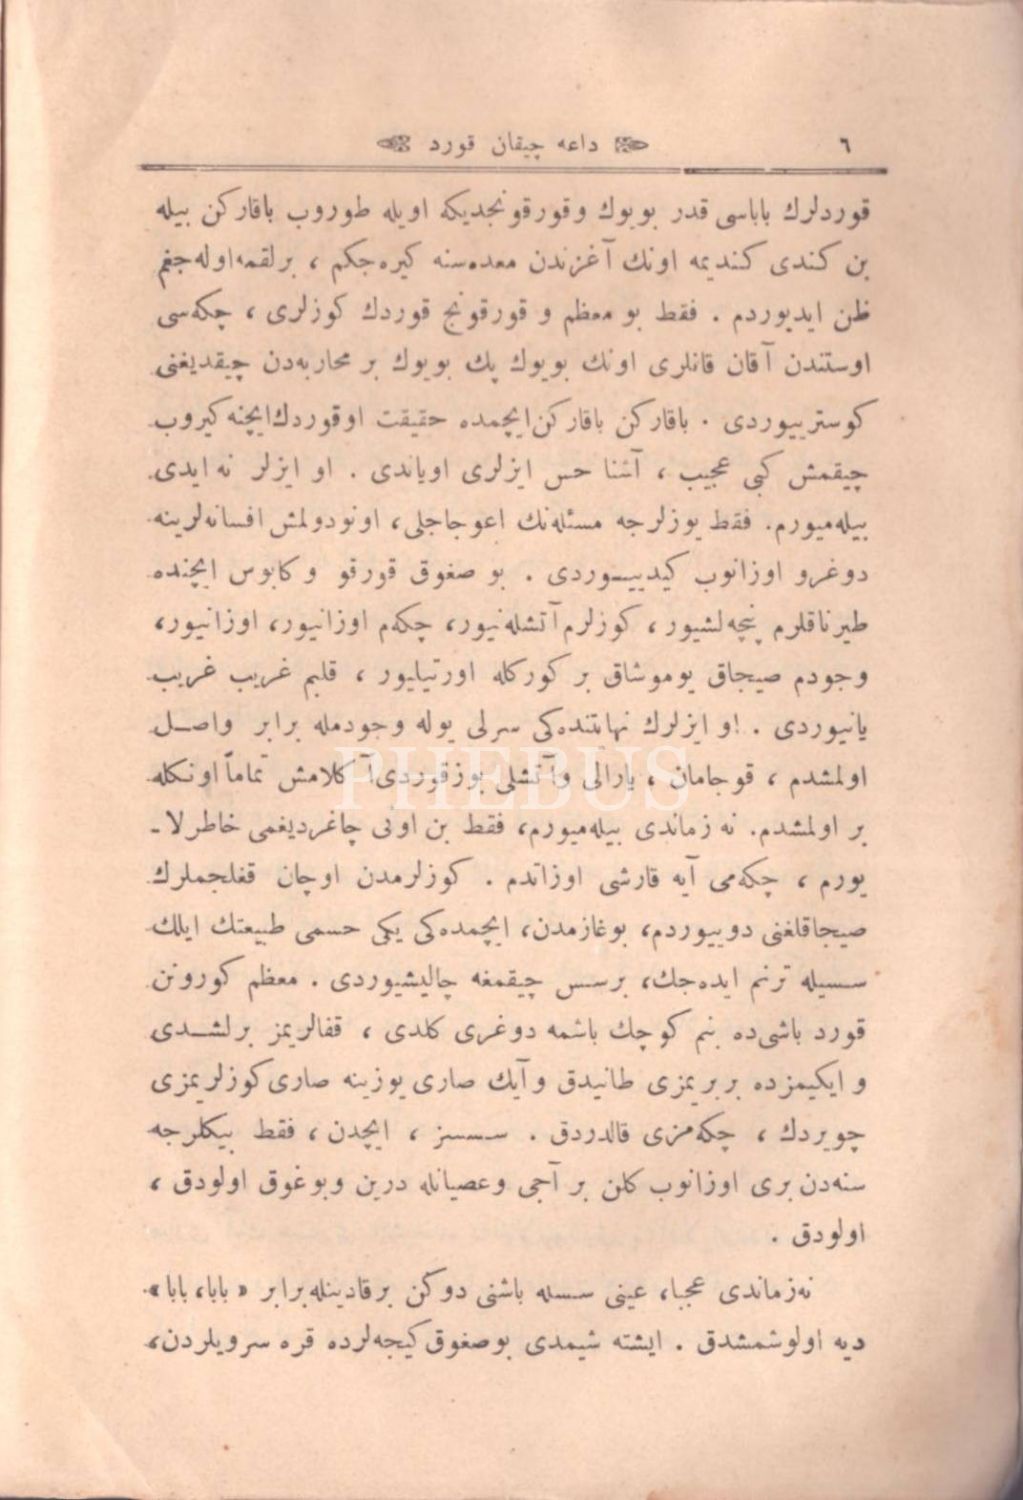 ٦ داغه چیقان قورد
قوردلرك باباسی قدر بویوك وقورقونجدیكه اویله طوروب باقاركن بیله
بن كندی كندیمه اونك آغزندن معده‌سنه كیره‌جكم ، برلقمه اوله‌جغم
ظن ایدیوردم . فقط بو معظم و قورقونج قوردك كوزلری ، چكه‌سی
اوستندن آقان قانلری اونك بویوك پك بویوك بر محاربه‌دن چیقدیغنی
كوسترییوردی . باقاركن باقاركن ایچمده حقیقت اوقوردك ایچنه كیروب
چیقمش كبی عجیب ، آشنا حس ایزلری اویاندی . او ایزلر نه ایدی
بیله‌میورم. فقط یوزلرجه مسئله‌نك اعوجاجلی، اونودولمش افسانه‌لرینه
دوغرو اوزانوب كیدییـوردی . بو صغوق قورقو و كابوس ایچنده
طیرناقلرم پنچه‌لشیور ، كوزلرم آتشله‌نیور، چكه‌م اوزانیور، اوزانیور،
وجودم صیجاق یوموشاق بر كوركله اورتیلیور ، قلبم غریب غریب
یانیوردی . او ایزلرك نهایتنده‌كی سرلی یوله وجودمله برابر واصـل
اولمشدم ، قوجامان ، یارالی وآتشلی بوزقوردی آكلامش تماماً اونكله
بر اولمشدم. نه زماندی بیله‌میورم، فقط بن اونی چاغردیغمی خاطرلا-
یورم ، چكه‌می آیه قارشی اوزاتدم . كوزلرمدن اوچان قغلجملرك
صیجاقلغنی دوییوردم، بوغازمدن، ایچمده‌كی یكی حسمی طبیعتك ایلك
سسیله ترنم ایده‌جك، برسس چیقمغه چالیشیوردی . معظم كورونن
قورد باشی‌ده بنم كوچك باشمه دوغری كلدی ، قفالریمز برلشـدی
و ایكیمزده بربریمزی طانیدق وآیك صاری یوزینه صاری كوزلریمزی
چویردك ، چكه‌مزی قالدردق . سسسز ، ایچدن ، فقط بیكلرجه
سنه‌دن بری اوزانوب كلن بر آجی وعصیانله درین وبوغوق اولودق ،
اولودق .
نه‌زماندی عجبا، عینی سسله باشنی دوكن برقادینله برابر « بابا، بابا».
دیه اولوشمشدق . ایشته شیمدی بوصغوق كیجه‌لرده قره سرویلردن،
PHEBUS